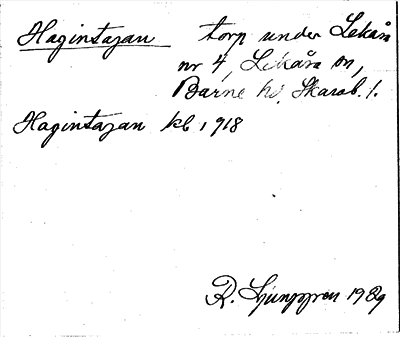 Hagintazan torp under Lekåsa
nr 4, Lekåsa sn,
Barne hd, Skarab. l.
Hagintazan kb 1918
R. Ljunggren 1989